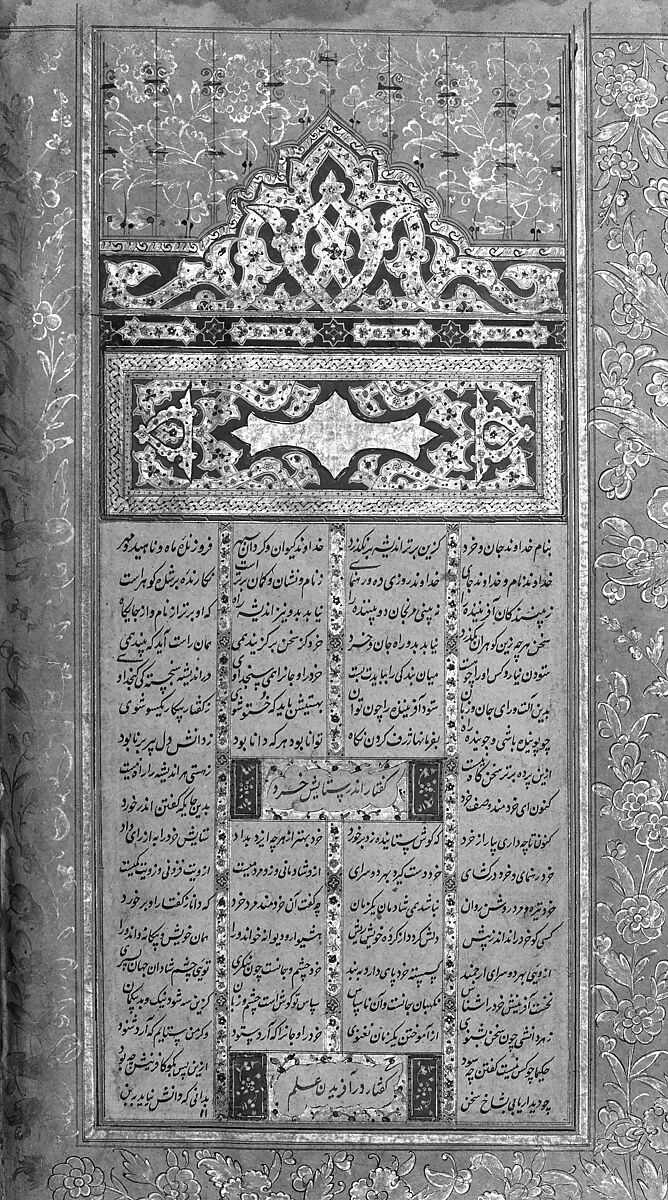 بنام خداوند جان و خرد کزین برتر اندیشه برنگذرد خداوند کیوان و گردان سپهر فروزنده ماه و ناهید و مهر
خداوند نام و خداوند جای خداوند روزی ده و رهنمای ز نام و نشان و گمان برتر است نگارنده بر شده گوهر است
ز بینندگان آفریننده را نه بینی مرنجان دو بیننده را نیابد بدو نیز اندیشه راه که او برتر از نام و از جایگاه
سخن هر چه زین گوهران بگذرد نیابد بدو راه جان و خرد خرد گر سخن برگزیند همی همان راست آید که بیند همی
ستودن نیارد کس او را چو هست میان بندگی را ببایدت بست خرد را و جان را همی سنجد اوی در اندیشه سخته کی گنجد او
بدین آلت و رای و جان و زبان ستود آفریننده را چون توان بهستیش باید که خستو شوی ز گفتار بیکار یکسو شوی
چو پوینده باشی و جوینده راه بفرمانها ژرف کردن نگاه توانا بود هر که دانا بود ز دانش دل پیر برنا بود
ازین پرده برتر سخن گاه نیست ز هستی مر اندیشه را راه نیست
گفتار اندر ستایش خرد
کنون ای خردمند وصف خرد بدین جایگه گفتن اندر خورد
کنون تا چه داری بیار از خرد که گوش ستاینده زو برخورد خرد بهتر از هر چه ایزد بداد ستایش خرد را به از راه داد
خرد رهنمای و خرد دلگشای خرد دست گیرد بهر دو سرای ازو شادمانی وزو مردمیست ازویت فزونی و زویت کمیست
خرد تیره و مرد روشن روان نباشد همی شادمان یکزمان چه گفت آن خردمند مرد خرد که دانا ز گفتار او برخورد
کسی کو خرد را ندارد ز پیش دلش گردد از کرده خویش ریش هشیوار دیوانه خواند ورا همان خویش بیگانه داند ورا
ازویی بهر دو سرای ارجمند گسسته خرد پای دارد ببند خرد چشم جانست چون بنگری تو بی چشم شادان جهان نسپری
نخست آفرینش خرد را شناس نگهبان جانست و آن سپاس سپاس تو گوش است و چشم و زبان کزین سه رسد نیک و بد بیگمان
ز هر دانشی چون سخن بشنوی از آموختن یکزمان نغنوی خرد را و جان را که آرد ستود وگر من ستایم که آرد شنود
حکیما چو کس نیست گفتن چه سود ازین پس بگو کافرینش چه بود
چو دیدار یابی بشاخ سخن بدانی که دانش نیاید به بن
گفتار در آفریدن علم